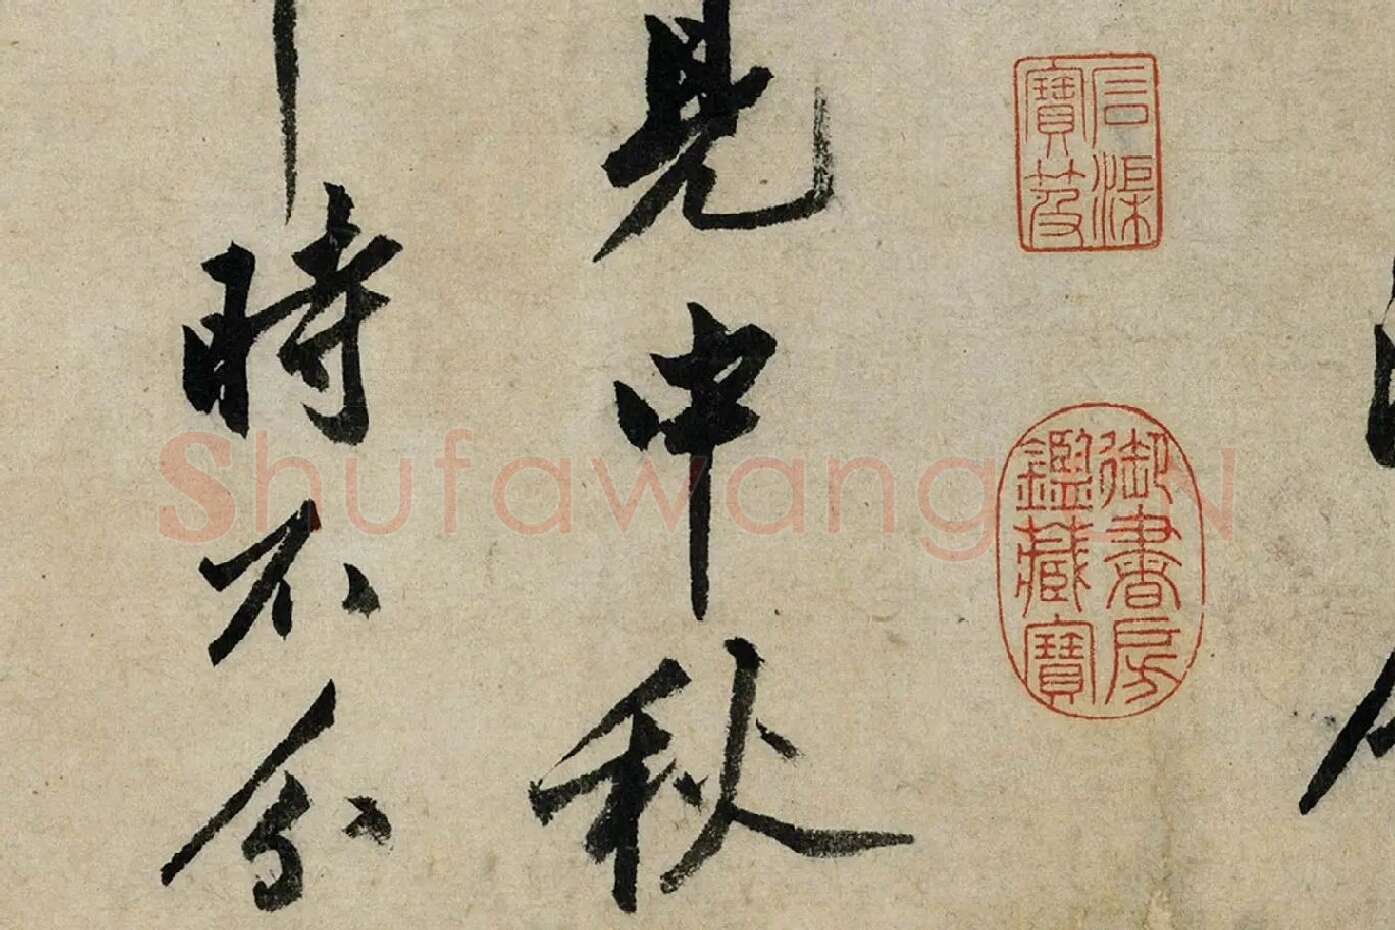 石渠
寶笈
御書房
鑑藏寶
見中秋
時不分
ShufawangCN